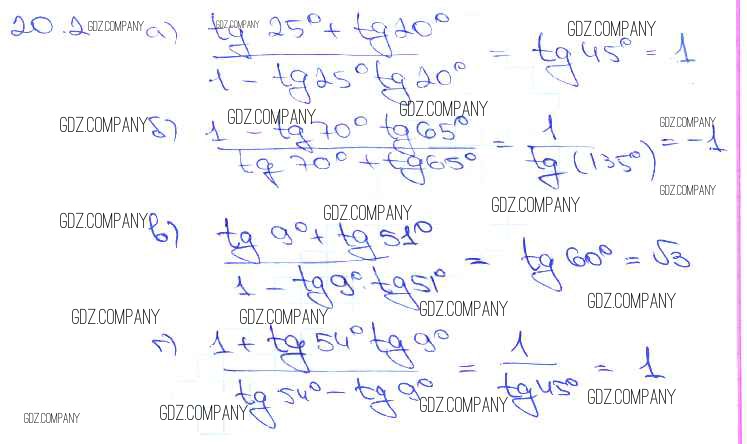 20.2 GDZ.COMPANY а) tg 25° + tg 20° GDZ.COMPANY GDZ.COMPANY
1 - tg 25° tg 20° = tg 45° = 1
GDZ.COMPANY GDZ.COMPANY GDZ.COMPANY
GDZ.COMPANY б) 1 - tg 70° tg 65°
tg 70° + tg 65° = 1
tg (135°) = -1
GDZ.COMPANY
GDZ.COMPANY GDZ.COMPANY GDZ.COMPANY
в) tg 9° + tg 51°
1 - tg 9° · tg 51° = tg 60° = √3
GDZ.COMPANY GDZ.COMPANY
GDZ.COMPANY GDZ.COMPANY
г) 1 + tg 54° tg 9°
tg 54° - tg 9° = 1
tg 45° = 1
GDZ.COMPANY GDZ.COMPANY GDZ.COMPANY GDZ.COMPANY